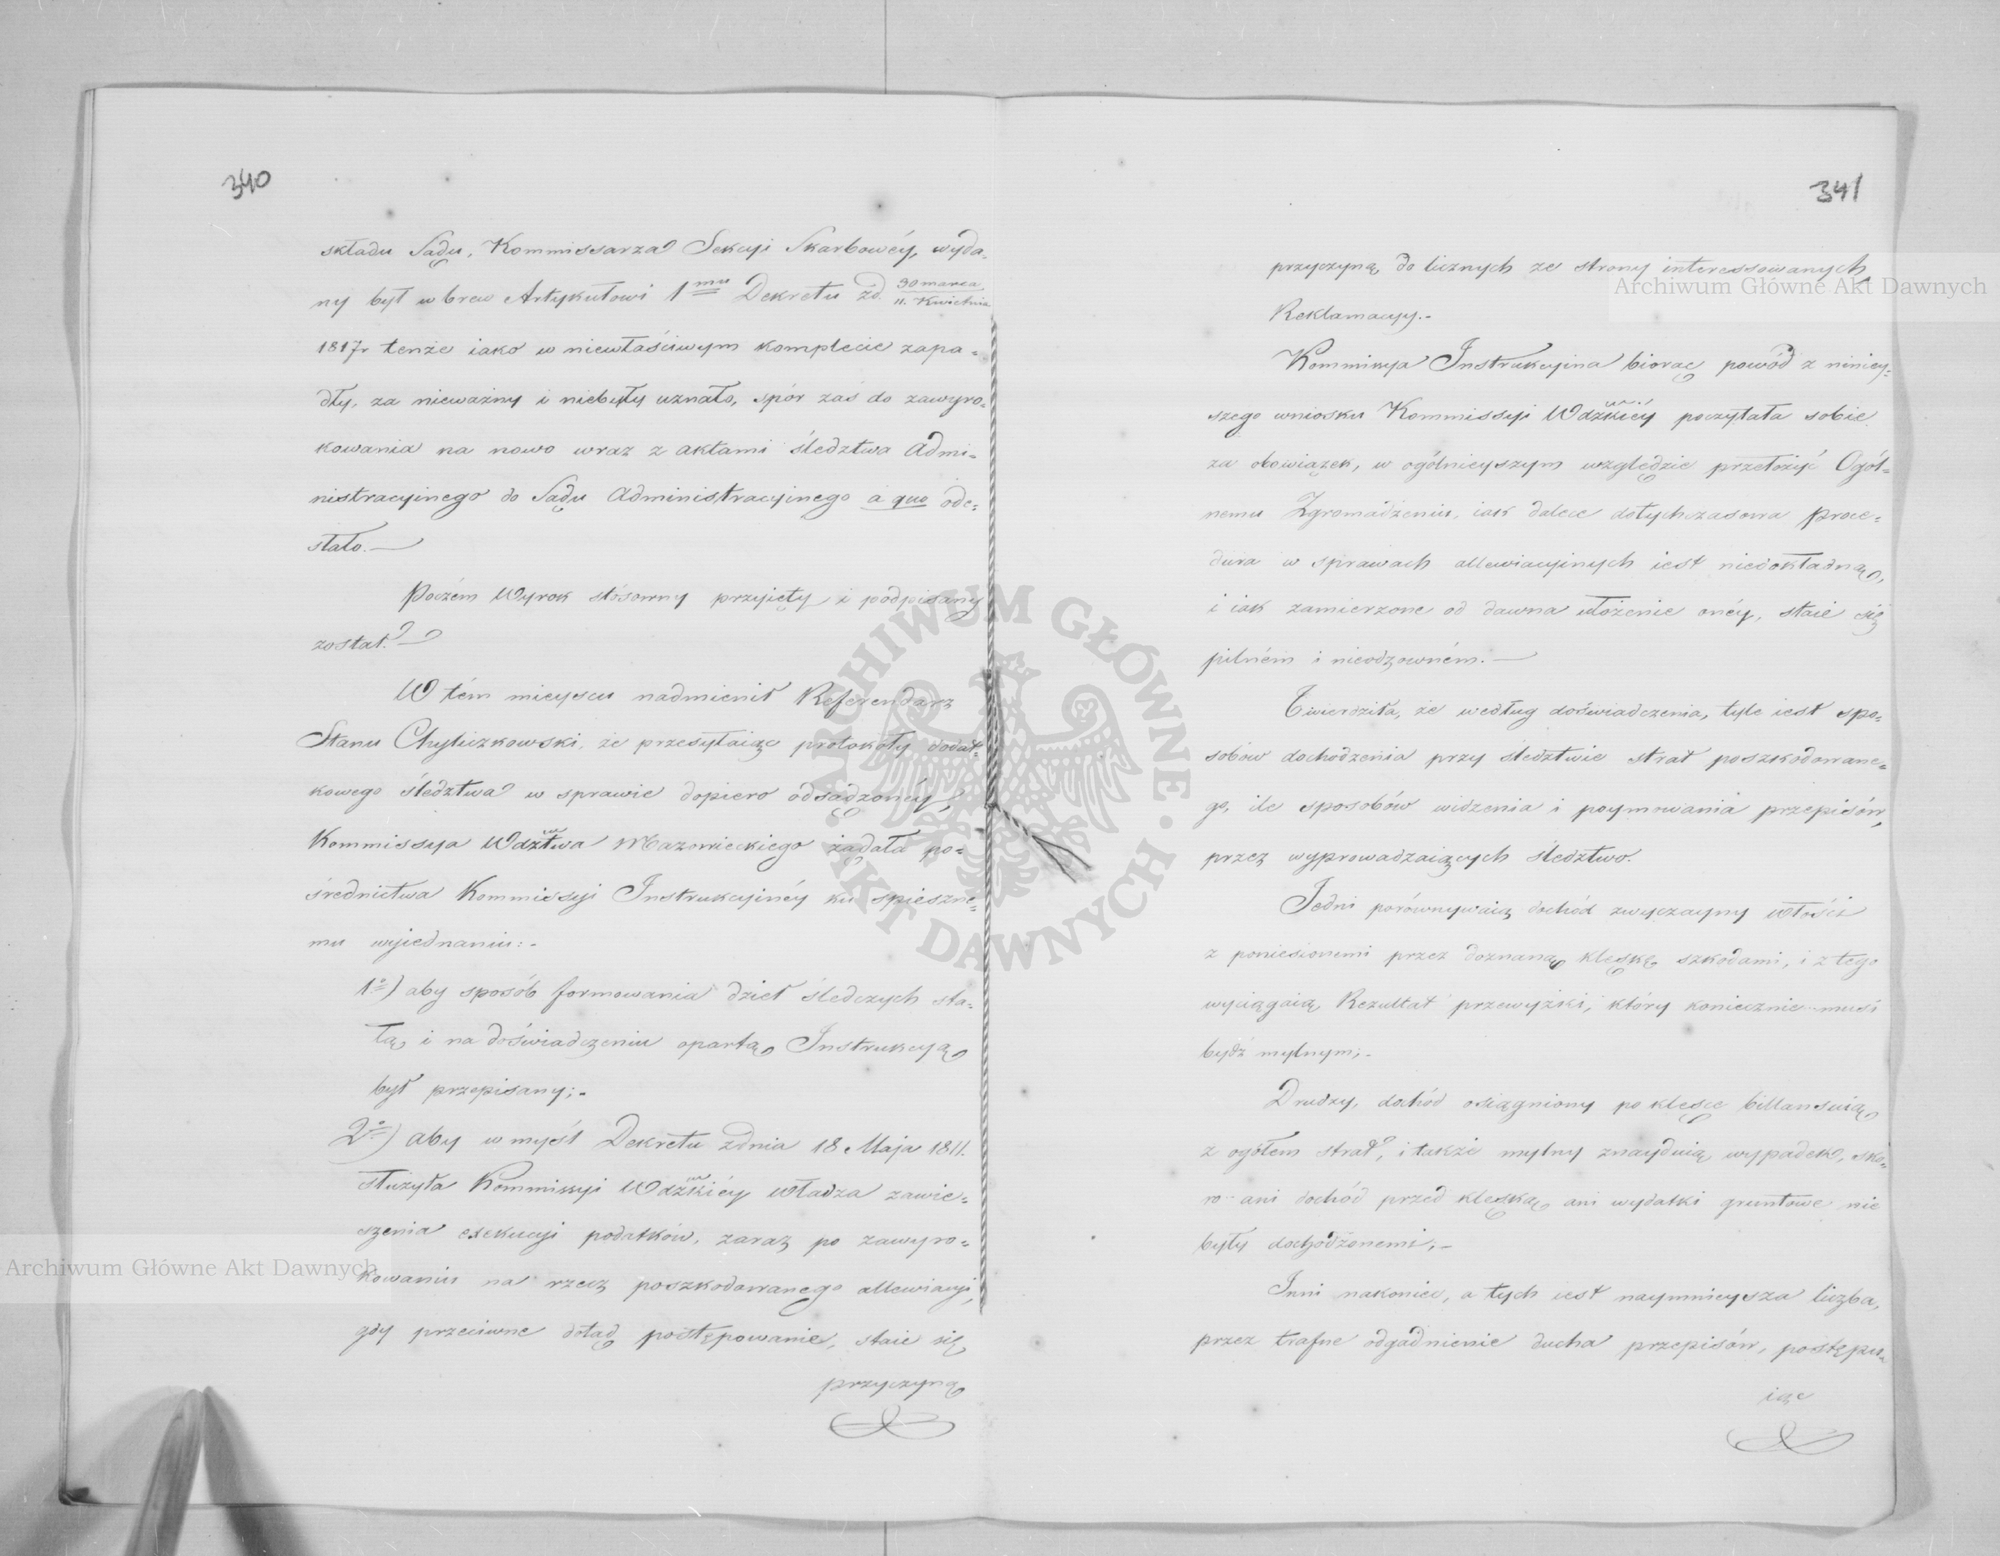 340
składu Sądu, Kommissarza Sekcyi Skarbowéy, wyda-
ny był wbrew Artykułowi 1mu Dekretu zd. 30 marca / 11. Kwietnia
1817r tenże iako w niewłaściwym komplecie zapa-
dły, za nieważny i niebyły uznało, spór zaś do zawyro-
kowania na nowo wraz z aktami śledztwa admi-
nistracyinego do Sądu Administracyinego a quo ode-
słało.—
Poczém Wyrok stósowny przyięty i podpisany
został.—
W tém mieyscu nadmienił Referendarz
Stanu Chyliczkowski, że przesyłaiąc protokoły dodat-
kowego śledztwa w sprawie dopiero odsądzonéy,
Kommissya Wdztwa Mazowieckiego żądała po-
średnictwa Kommissyi Instrukcyinéy ku spieszne-
mu wyiednaniu:-
1º) aby sposób formowania dzieł śledczych sta-
łą i na doświadczeniu opartą Instrukcyą
był przepisany;-
2º) aby w myśl Dekretu zdnia 18 Maja 1811.
służyła Kommissyi Wdzkiéy władza zawie-
szenia exekucyi podatków, zaraz po zawyro-
kowaniu na rzecz poszkodowanego allewiacyi,
gdy przeciwne dotąd postępowanie, staie się
przyczyną
341
przyczyną do licznych ze strony interessowanych
Reklamacyy.-
Kommissya Instrukcyina biorąc powód z niniey-
szego wniosku Kommissyi Wdzkiéy poczytała sobie
za obowiązek, w ogólnieyszym względzie przełożyć Ogól-
nemu Zgromadzeniu, iak dalece dotychczasowa proce-
dura w sprawach allewiacyinych iest niedokładną,
i iak zamierzone od dawna ułożenie onéy, staie się
pilném i nieodzowném.—
Twierdziła, że według doświadczenia, tyle iest spo-
sobów dochodzenia przy śledztwie strat poszkodowane-
go, ile sposobów widzenia i poymowania przepisów,
przez wyprowadzaiących śledztwo.
Jedni porównywaią dochód zwyczayny włości
z poniesionemi przez doznaną klęskę szkodami, i z tego
wyciągaią Rezultat przewyżki, który koniecznie musi
bydź mylnym;-
Drudzy, dochód osiągniony po klęsce billansuią
z ogółem strat, i także mylny znayduią wypadek, sko-
ro ani dochód przed klęską ani wydatki gruntowe nie
były dochodzonemi;-
Inni nakoniec, a tych iest naymnieysza liczba,
przez trafne odgadnienie ducha przepisów, postępu-
iąc
Archiwum Główne Akt Dawnych
Archiwum Główne Akt Dawnych
ARCHIWUM GŁÓWNE · AKT DAWNYCH ·